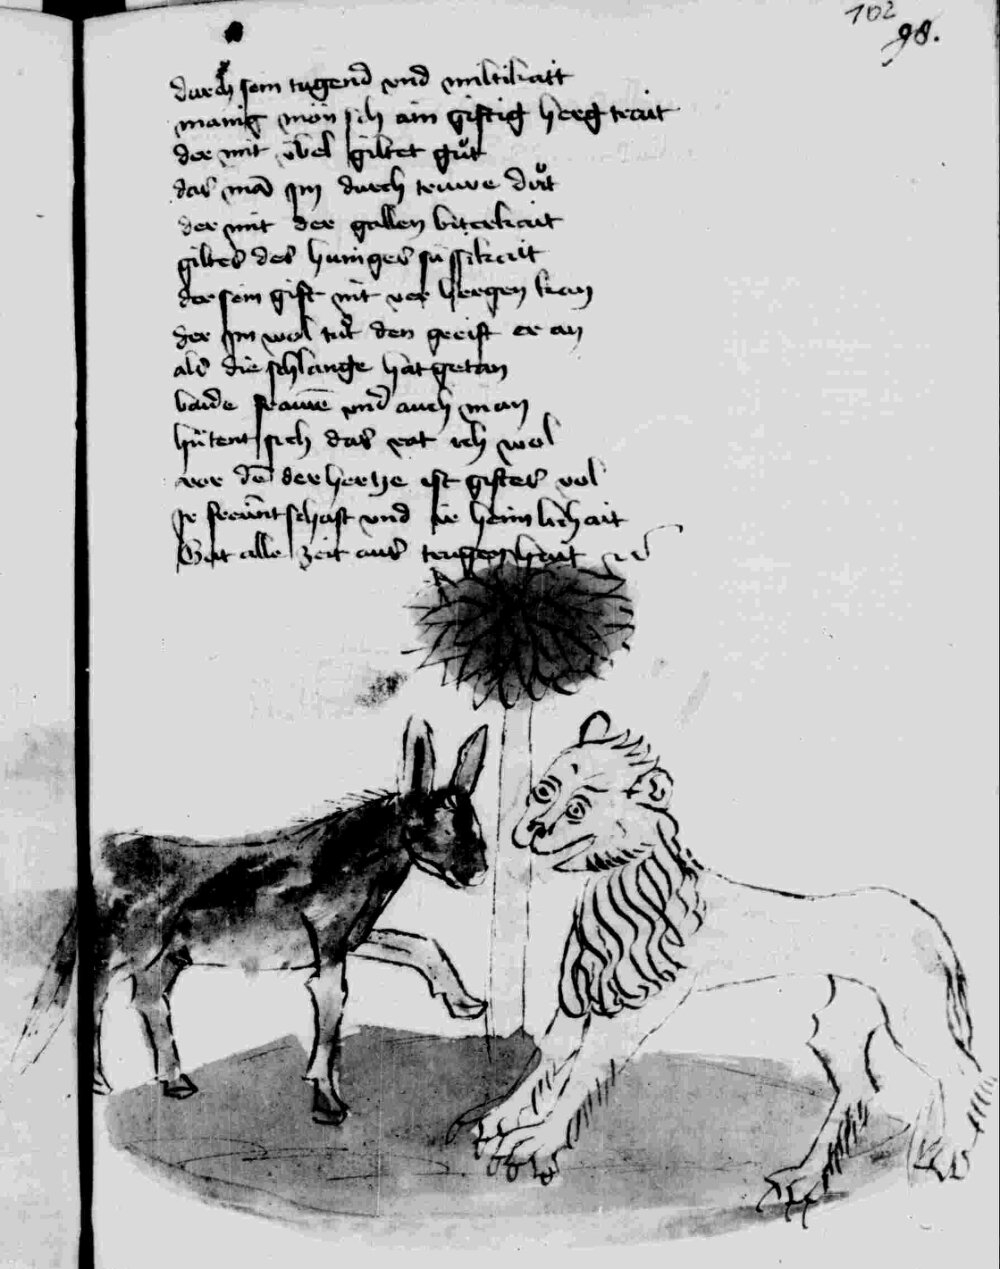 102
98.
durch sein tugend vnd miltikait
manig mönsch ain giftig herg trait
der mit übel giltet gůt
das mā im durch truwe důt
der mit der gallen biterkait
giltes des huniges süssikait
der sein gift nit ver bergen kan
der im wol tůt den greift er an
als die schlange hat getan
baide frawē vnd auch man
hütent sich das rat ich wol
vor dē der hertze ist giftes vol
Ir freüntschaft vnd ir heimlichait
Gat alle zeit aus